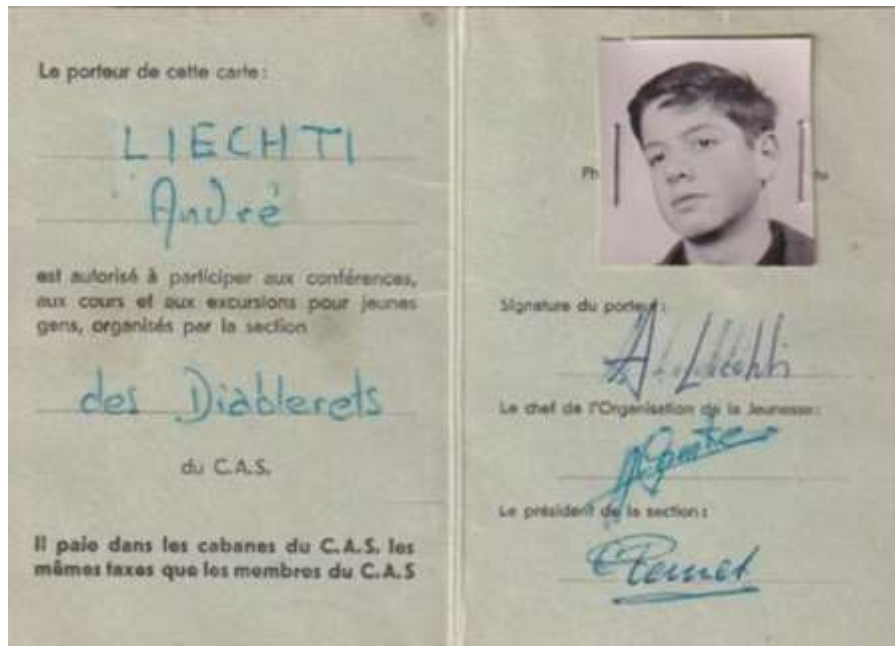 Le porteur de cette carte :
LIECHTI
André
est autorisé à participer aux conférences,
aux cours et aux excursions pour jeunes
gens, organisés par la section
des Diablerets
du C.A.S.
Il paie dans les cabanes du C.A.S. les
mêmes taxes que les membres du C.A.S
Ph
Signature du porteur :
A. Liechti
Le chef de l'Organisation de la Jeunesse :
Le président de la section :